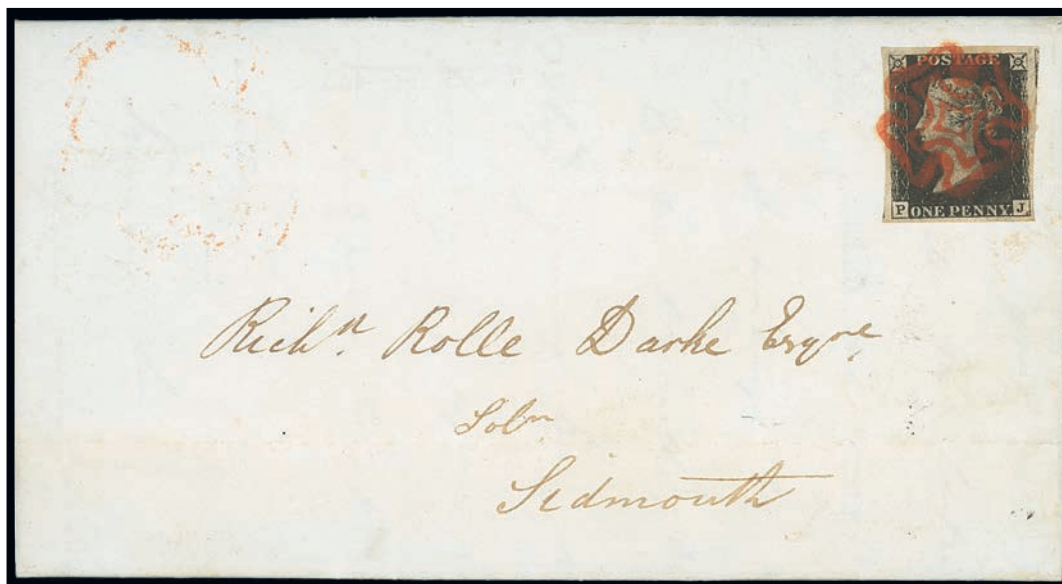 POSTAGE
P ONE PENNY J
Richd. Rolle Darke Esqre.
Solr.
Sidmouth